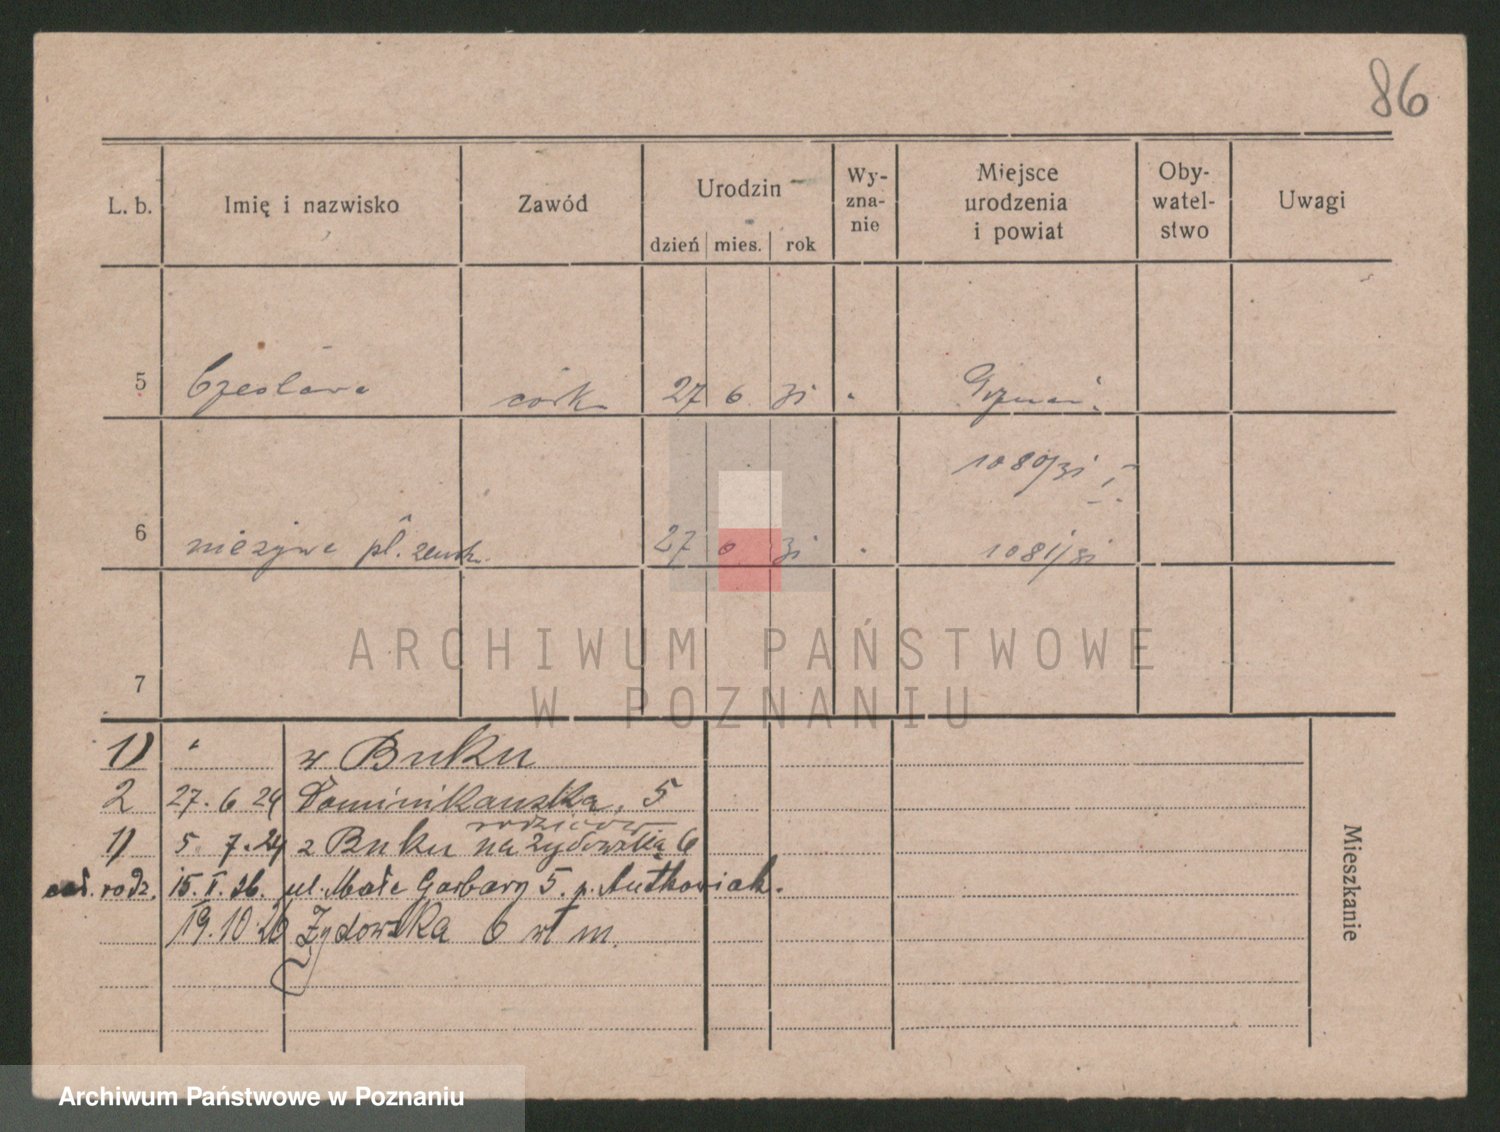 86
L. b. Imię i nazwisko Zawód Urodzin dzień mies. rok Wy-zna-nie Miejsce urodzenia i powiat Oby-watel-stwo Uwagi
5 Czesława córk 27 6 31 Poznań
1080/31 I
6 nieżywe pł. żeńsk. 27 6 31 1081/31
7
ARCHIWUM PAŃSTWOWE
W POZNANIU
1) w Buku
2 27. 6 24 Dominikańska 5
rodziców
1) 5. 7. 24 z Buku na Żydowską 6
cał. rodz. 15. I. 26. ul. Małe Garbary 5. p. Antkowiak.
19. 10. 26 Żydowska 6 wł m.
Mieszkanie
Archiwum Państwowe w Poznaniu